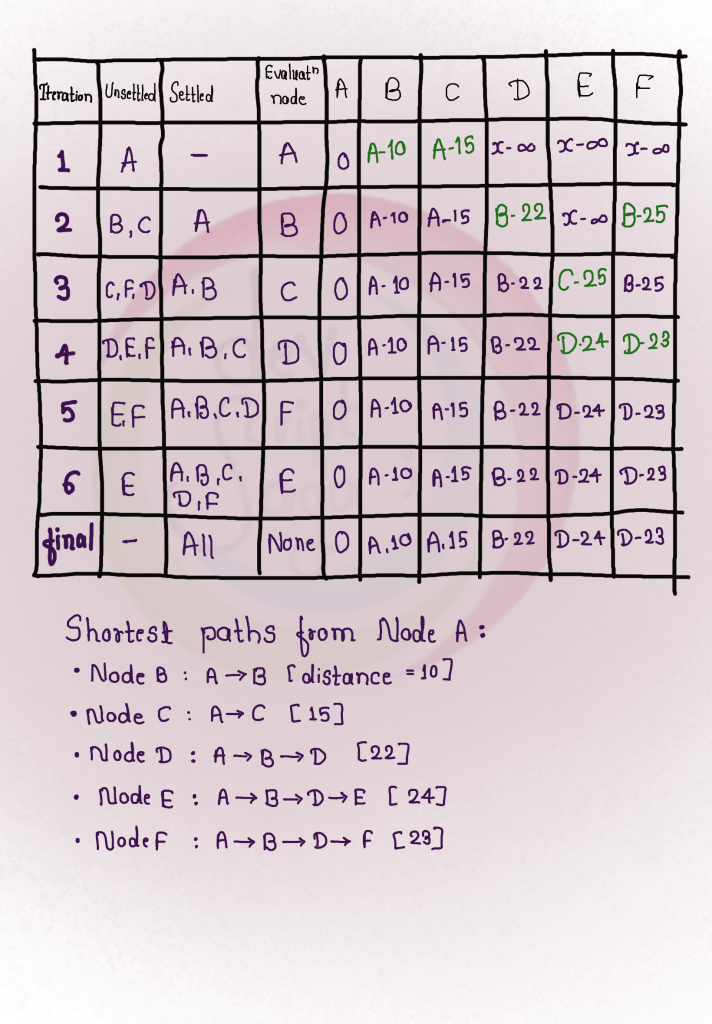 Iteration Unsettled Settled Evaluatⁿ node A B C D E F
1 A - A 0 A-10 A-15 x-∞ x-∞ x-∞
2 B,C A B 0 A-10 A-15 B-22 x-∞ B-25
3 C,F,D A.B C 0 A-10 A-15 B-22 C-25 B-25
4 D,E,F A,B,C D 0 A-10 A-15 B-22 D-24 D-23
5 E,F A,B,C,D F 0 A-10 A-15 B-22 D-24 D-23
6 E A,B,C, D,F E 0 A-10 A-15 B-22 D-24 D-23
final - All None 0 A,10 A,15 B-22 D-24 D-23
Shortest paths from Node A:
• Node B : A→B [distance =10]
• Node C : A→C [15]
• Node D : A→B→D [22]
• Node E : A→B→D→E [24]
• Node F : A→B→D→F [23]